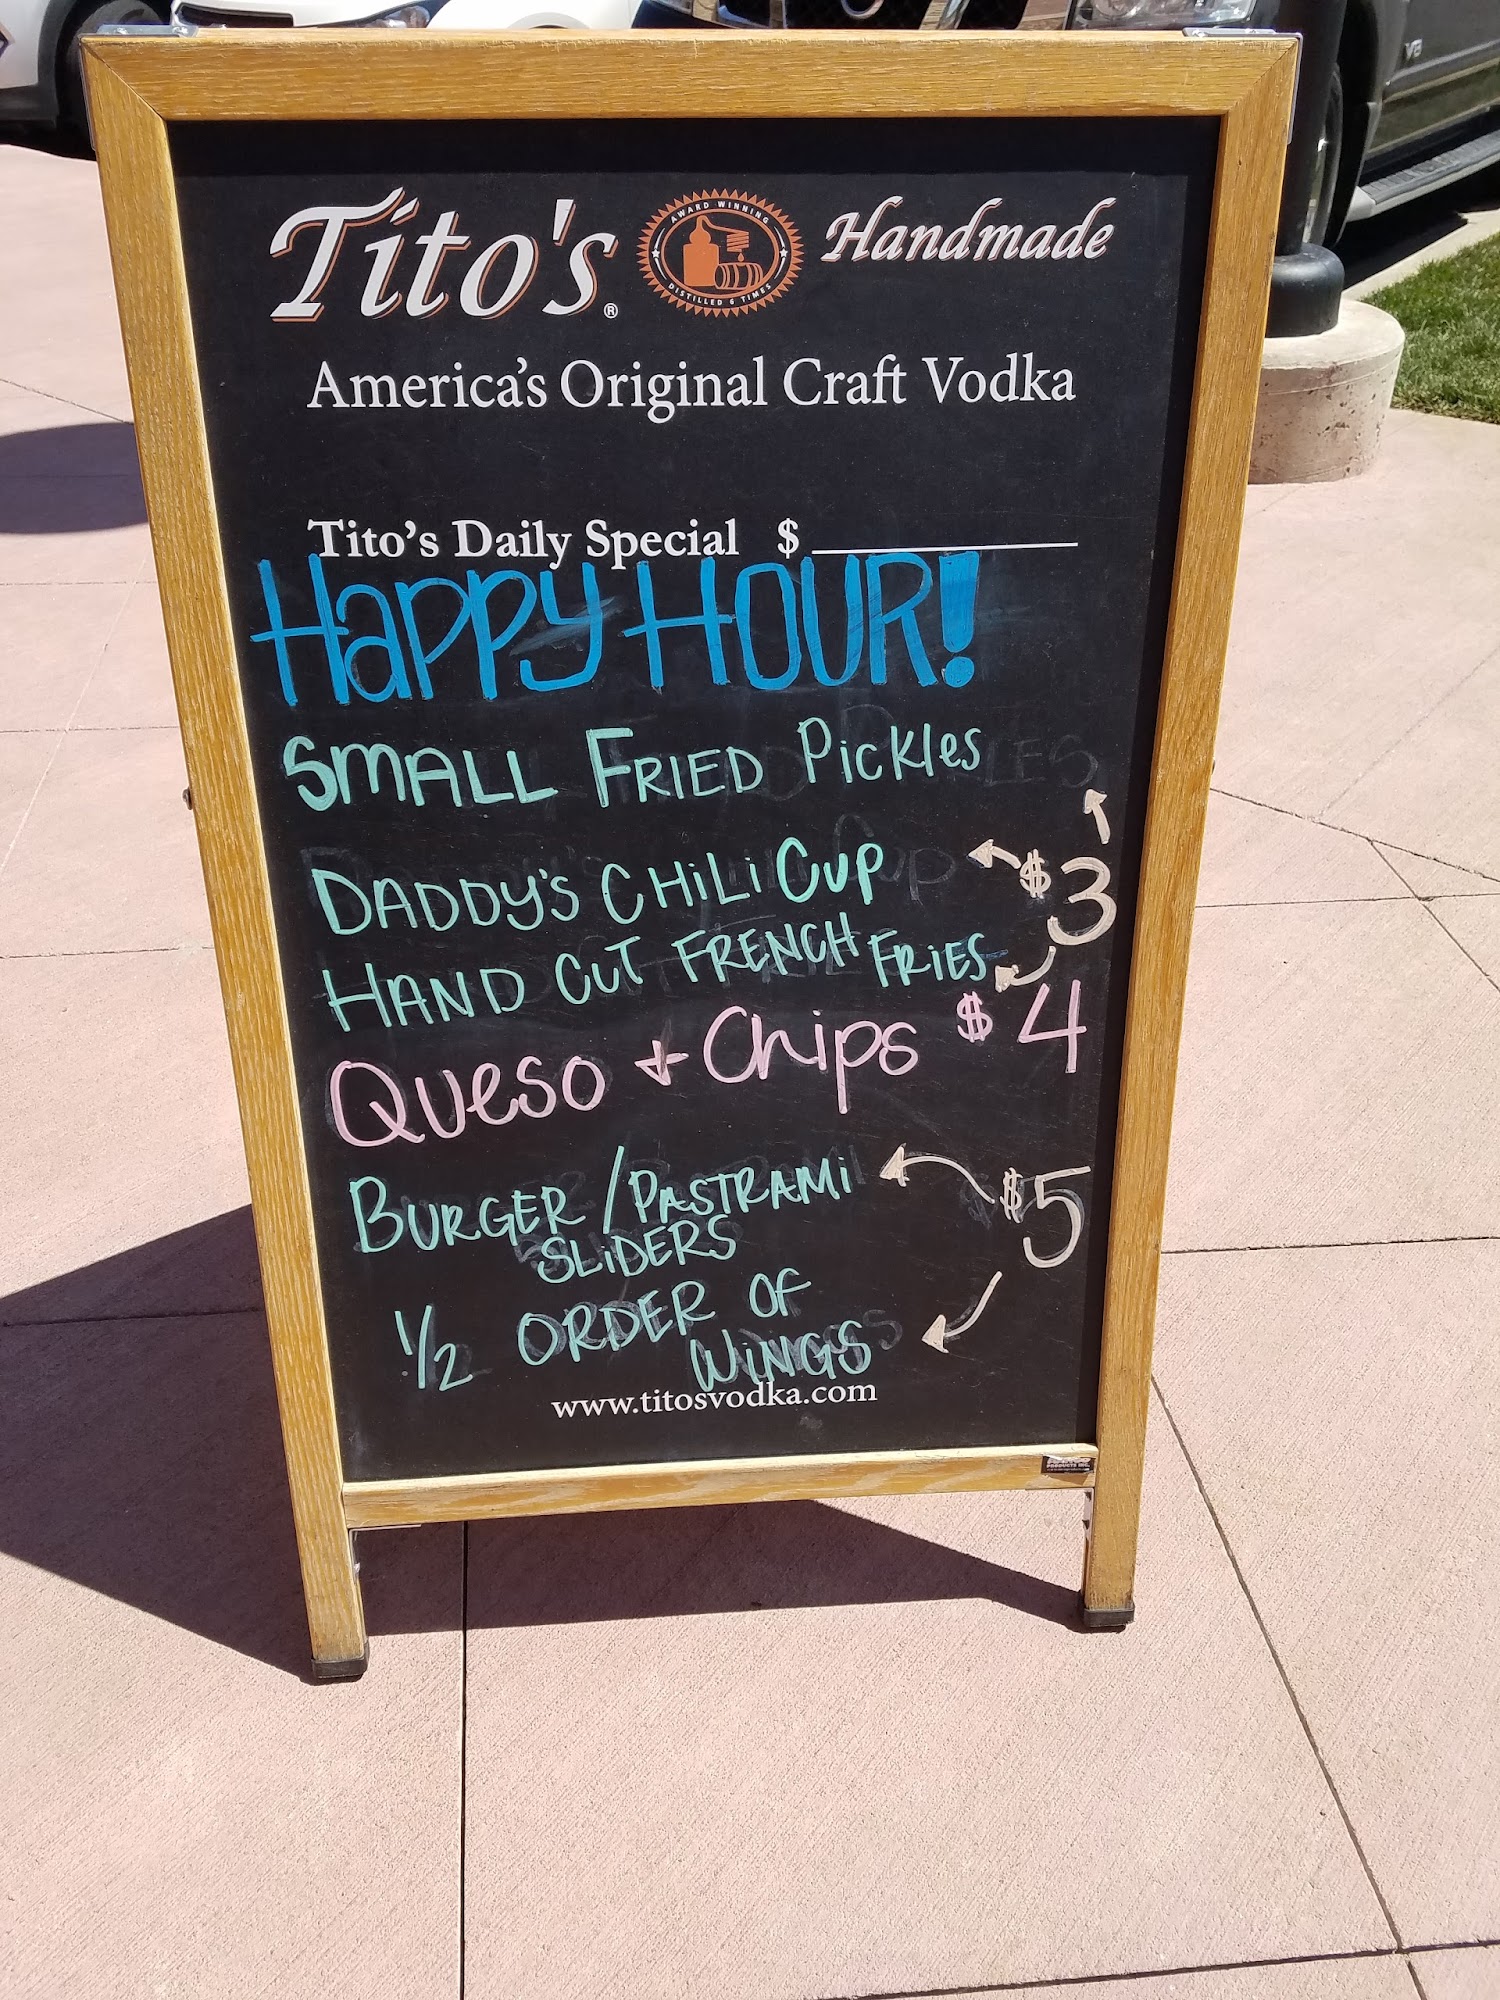 Tito's® AWARD WINNING DISTILLED 6 TIMES Handmade
America's Original Craft Vodka
Tito's Daily Special $
HAPPY HOUR!
SMALL FRIED PICKLES
DADDY'S CHILI CUP $3
HAND CUT FRENCH FRIES
QUESO + CHIPS $4
BURGER/PASTRAMI $5
SLIDERS
1/2 ORDER OF
WINGS
www.titosvodka.com
V8